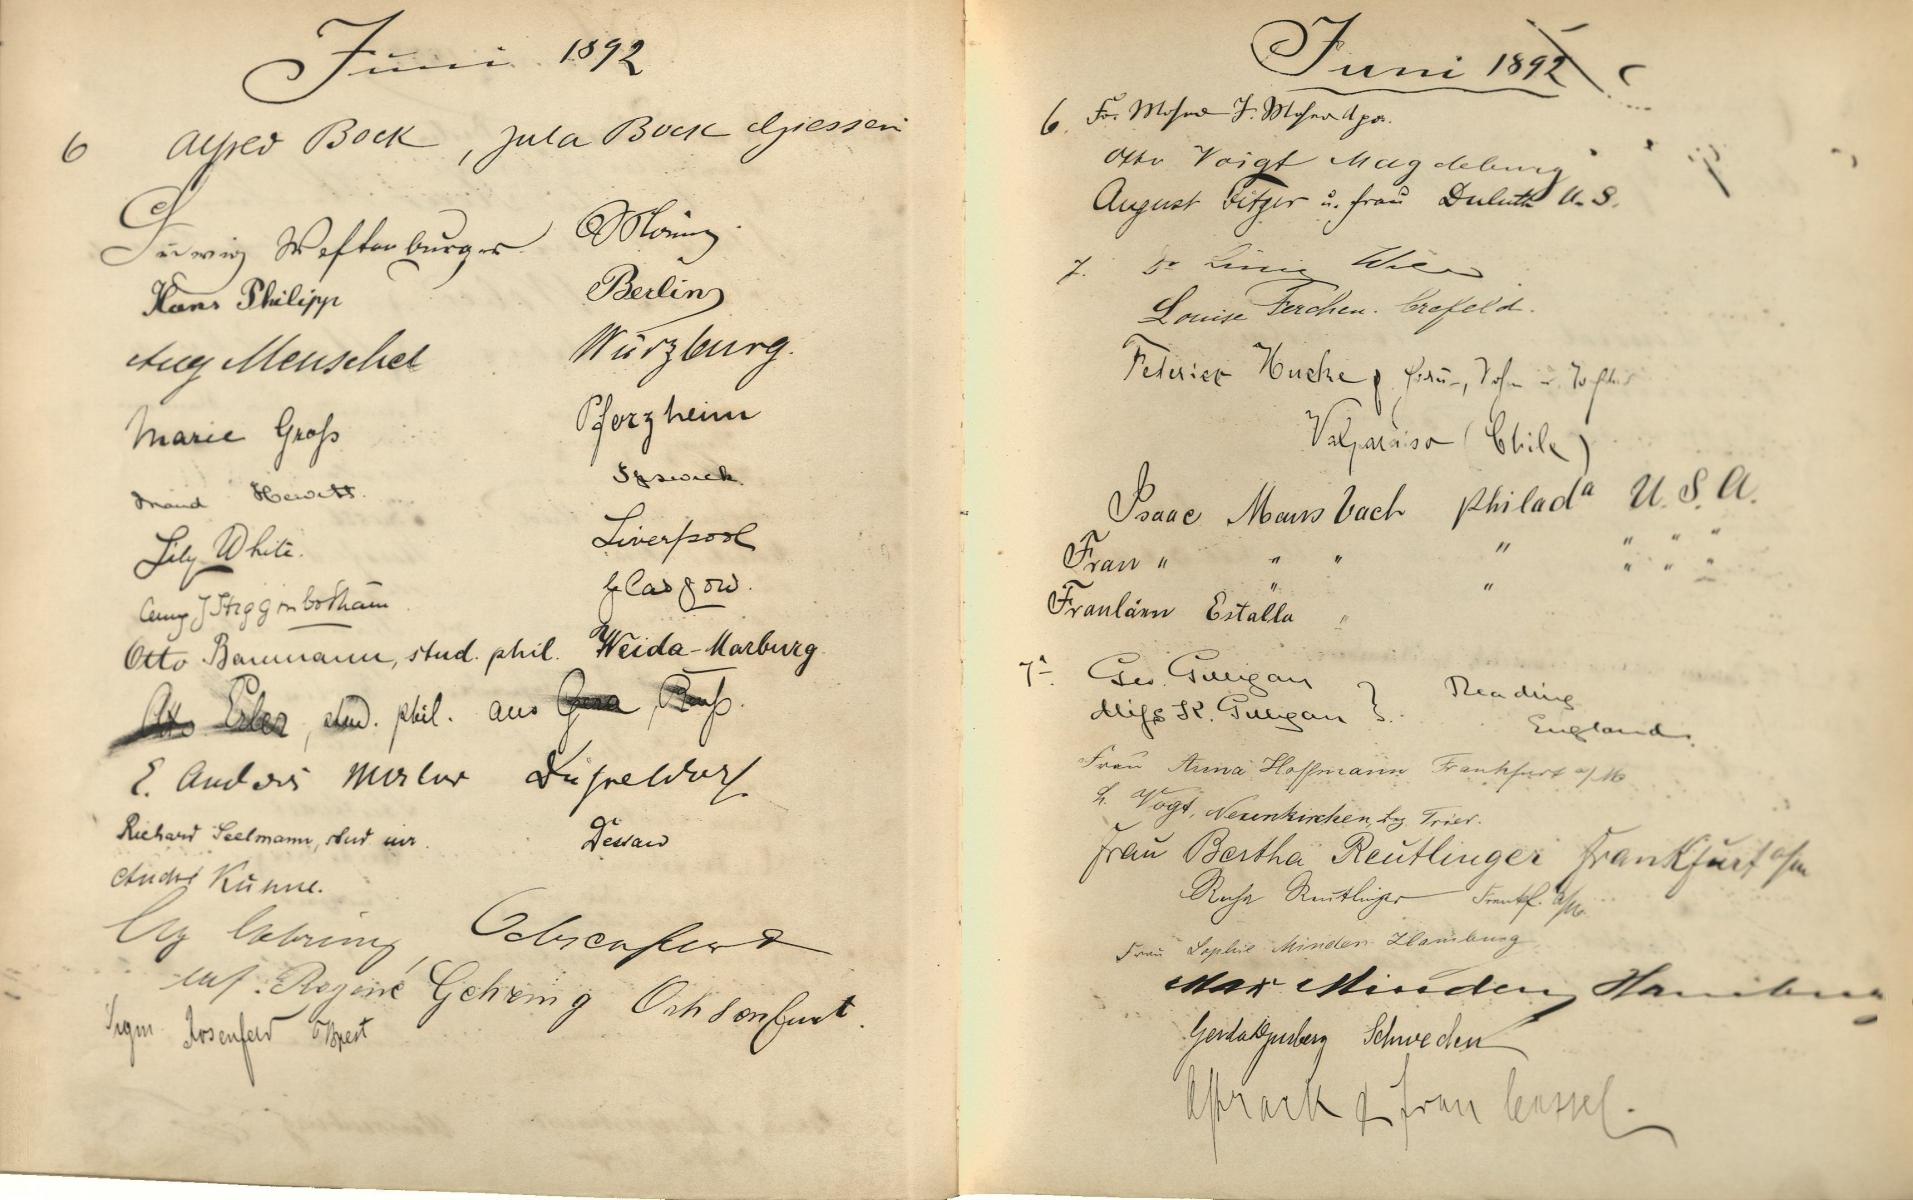 Juni 1892
6 Alfred Bock, Jula Bock Giessen
Ludwig
Hans Philipp Berlin
Aug Menschel Würzburg.
Marie Groß Pforzheim
Maud Hewitt. Ipswich
Lily White. Liverpool
Amy J Higginbotham Glasgow.
Otto Baumann, stud. phil. Weida-Marburg
Otto Erler, stud. phil. aus Gera, Reuß.
E. Düsseldorf.
Richard Seelmann, stud iur. Dessau
André Kühne.
Gehring, Ochsenfurt
Regine Gehring Ochsenfurt.
Sigm. Rosenfeld
Juni 1892
6. Fr.
Otto Voigt Magdeburg
August Fitger u. Frau Duluth U. S.
7. Dr Wien
Louise Ferchen. Crefeld.
Federico Hucke, Frau, Sohn u. Tochter
Valparaiso (Chile)
Isaac Mansbach Philada U. S. A.
Frau " " " " " " "
Frauläin Estella " " " " " "
7. Geo. Gilligan } Reading
Miss K. Gilligan England.
Frau Anna Hoffmann Frankfurt a/M
H. Vogt, Neunkirchen, Bez. Trier.
Frau Bertha Reutlinger Frankfurt a/m
Reutlinger Frankf. a/M.
Frau Sophie Minden Hamburg
Max Minden, Hamburg
Gerda Schweden
& Frau Cassel.